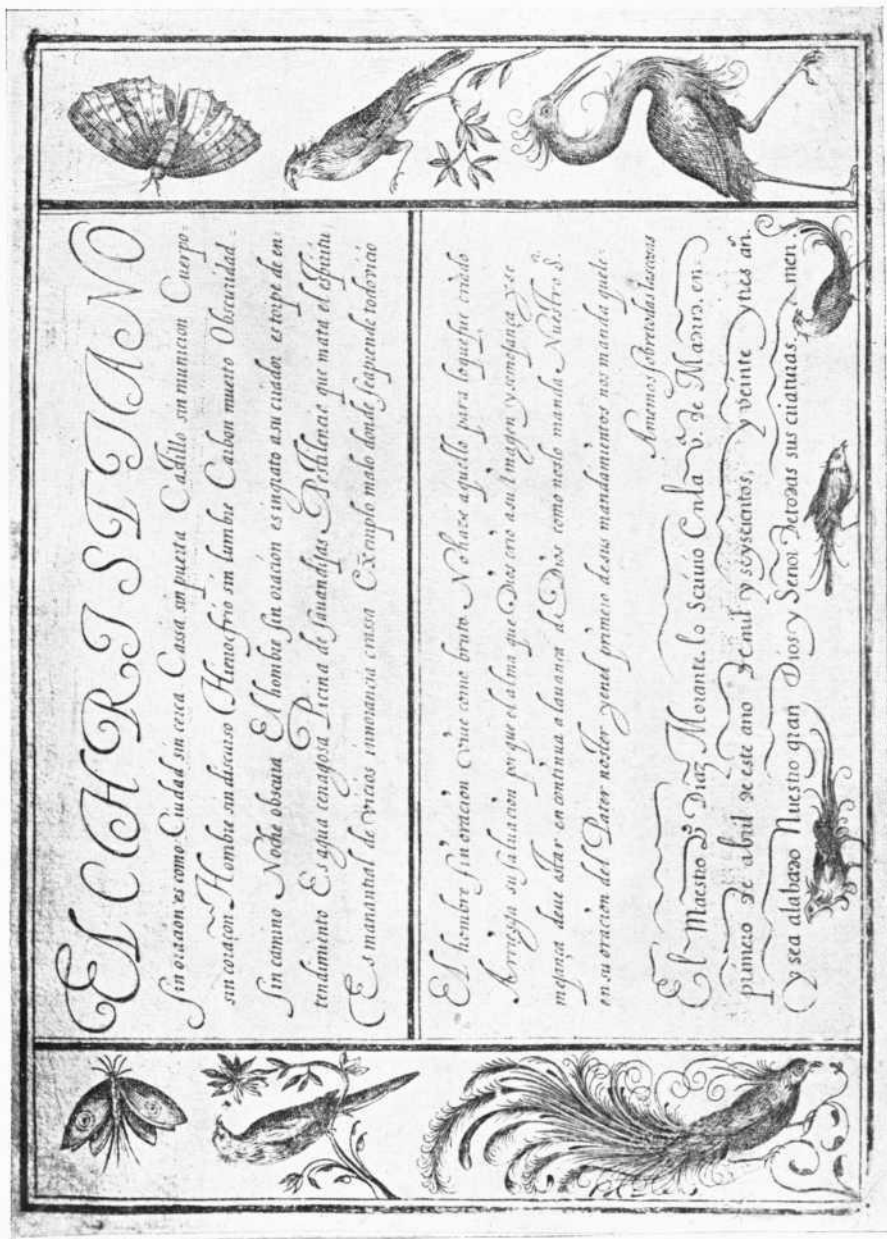 El CHRISTIANO
sin oracion es como Ciudad sin cerca Cassa sin puerta Castillo sin municion Cuerpo
sin coraçon Hombre sin discurso Hierro frio sin lumbre Carbon muerto Obscuridad
sin camino Noche obscura El hombre sin oración es ingrato a su criador es torpe de en
tendimiento Es agua cenagosa Picina de sauandijas Pestilencia que mata el espiritu
Es manantial de vicios innorancia crassa Exemplo malo donde se aprende todo vicio
El hombre sin oracion Viue como bruto No haze aquello para loque fue criado
Arriesga su saluacion por que el alma que Dios crio a su Imagen y semejança y se
mejança deue estar en continua alauança de Dios como noslo manda Nuestro S.r
en su oración del Pater noster yenel primero desus mandamientos nos manda quele
Amemos sobretodas lascosas
El Maestro P.o Diaz Morante, lo Scriuio Enla V.a de Madrid, en
primero de abril de este ano de mil y seyscientos, y veinte ytres añ.
Y sea alabado Nuestro gran Dios y Señor Detodas sus criaturas, men